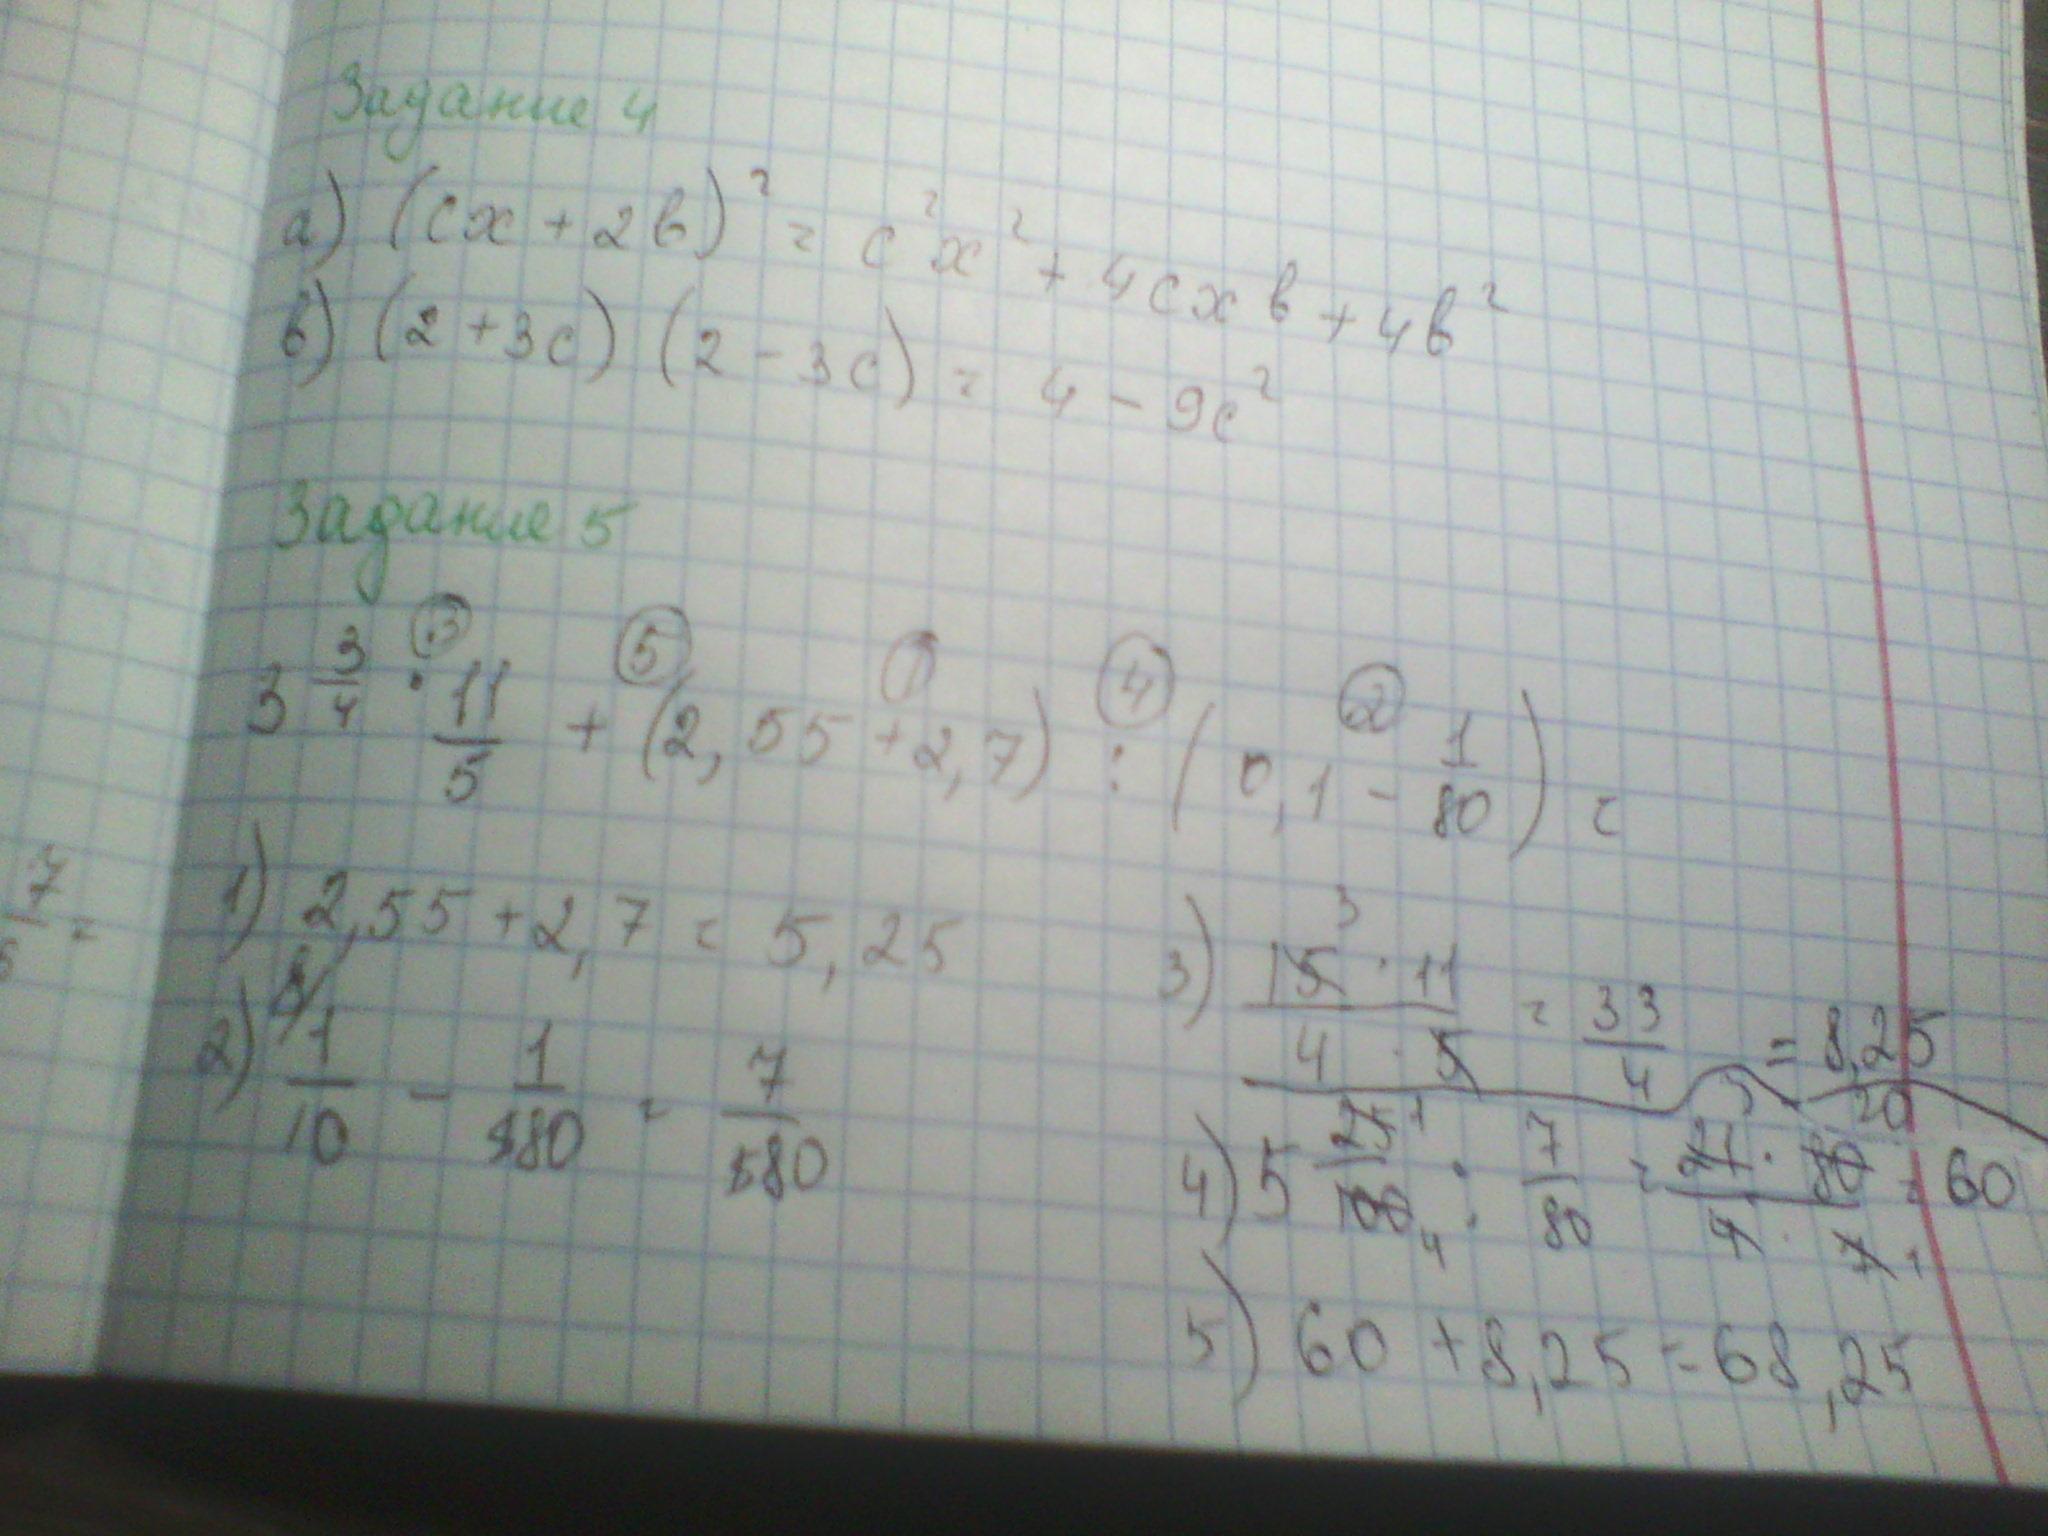 Задание 4
а) (cx + 2в)² = c²x² + 4cxв + 4в²
в) (2 + 3c) (2 - 3c) = 4 - 9c²
Задание 5
3 3/4 · 11/5 + (2,55 + 2,7) : (0,1 - 1/80) =
1) 2,55 + 2,7 = 5,25
2) 1/10 - 1/80 = 7/80
3) 15 · 11 / 4 · 5 = 33/4 = 8,25
4) 5 25/100 : 7/80 = 21 · 80 / 4 · 7 = 60
5) 60 + 8,25 = 68,25